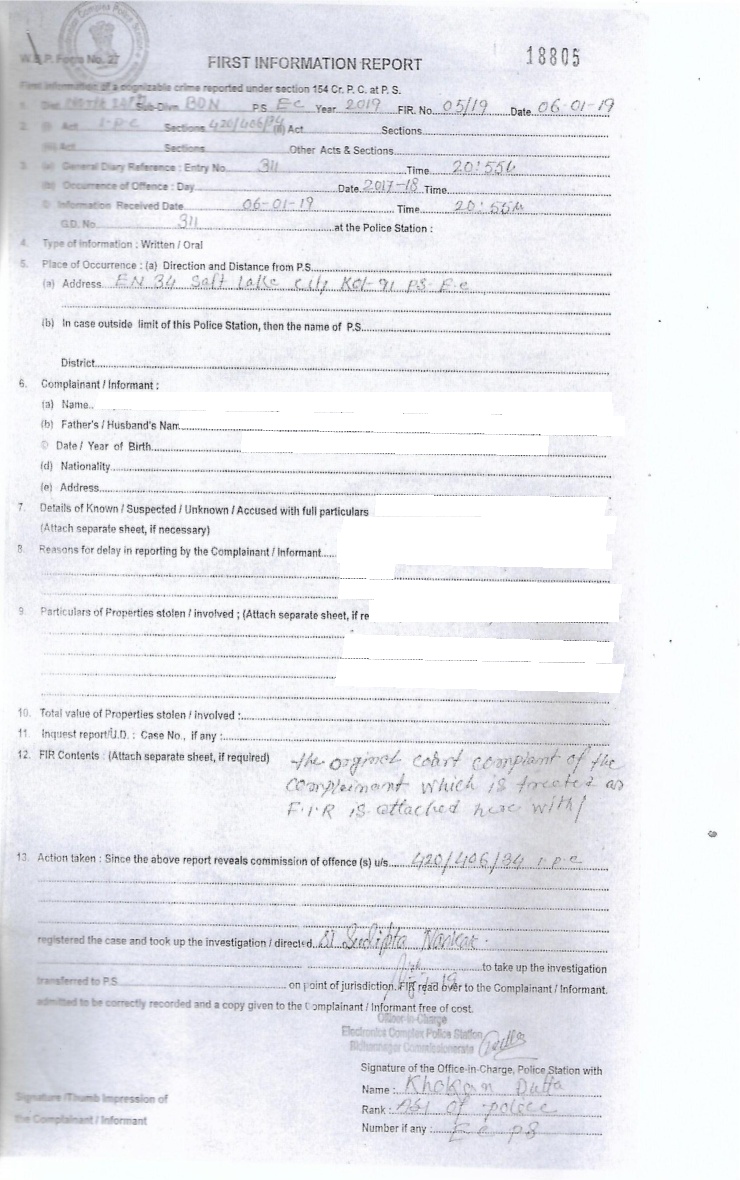 W.B.P. Form No. 27
18805
FIRST INFORMATION REPORT
First information of a cognizable crime reported under section 154 Cr. P. C. at P. S.
1. Dist. North Sub-Divn. BDN P.S. EC Year 2019 FIR. No. 05/19 Date 06-01-19
2. (i) Act I.P.C Sections 420/406/34 (ii) Act Sections
(iii) Act Sections Other Acts & Sections
3. (a) General Diary Reference : Entry No. 311 Time 20:55
(b) Occurrence of Offence : Day Date 2017-18 Time
© Information Received Date 06-01-19 Time 20:55
G.D. No. 311 at the Police Station :
4. Type of information : Written / Oral
5. Place of Occurrence : (a) Direction and Distance from P.S.
(a) Address EN 34 Salt Lake City Kol-91 PS E.C
(b) In case outside limit of this Police Station, then the name of P.S.
District
6. Complainant / Informant :
(a) Name
(b) Father's / Husband's Nam
© Date / Year of Birth
(d) Nationality
(e) Address
7. Details of Known / Suspected / Unknown / Accused with full particulars
(Attach separate sheet, if necessary)
8. Reasons for delay in reporting by the Complainant / Informant
9. Particulars of Properties stolen / involved ; (Attach separate sheet, if re
10. Total value of Properties stolen / involved :
11. Inquest report/U.D. : Case No., if any :
12. FIR Contents : (Attach separate sheet, if required) the orginal court complaint of the
complainant which is treated as
F.I.R is attached here with/
13. Action taken : Since the above report reveals commission of offence (s) u/s. 420/406/34 I.P.C
registered the case and took up the investigation / directed SI Sudipta Naskar
to take up the investigation
transferred to P.S. on point of jurisdiction. FIR read over to the Complainant / Informant.
admitted to be correctly recorded and a copy given to the Complainant / Informant free of cost.
Officer-in-Charge
Electronics Complex Police Station
Bidhannagar Commissionerate
Signature of the Office-in-Charge, Police Station with
Name : Khokan Dutta
Signature /Thumb Impression of
Rank : ASI of police
the Complainant / Informant
Number if any : EC PS